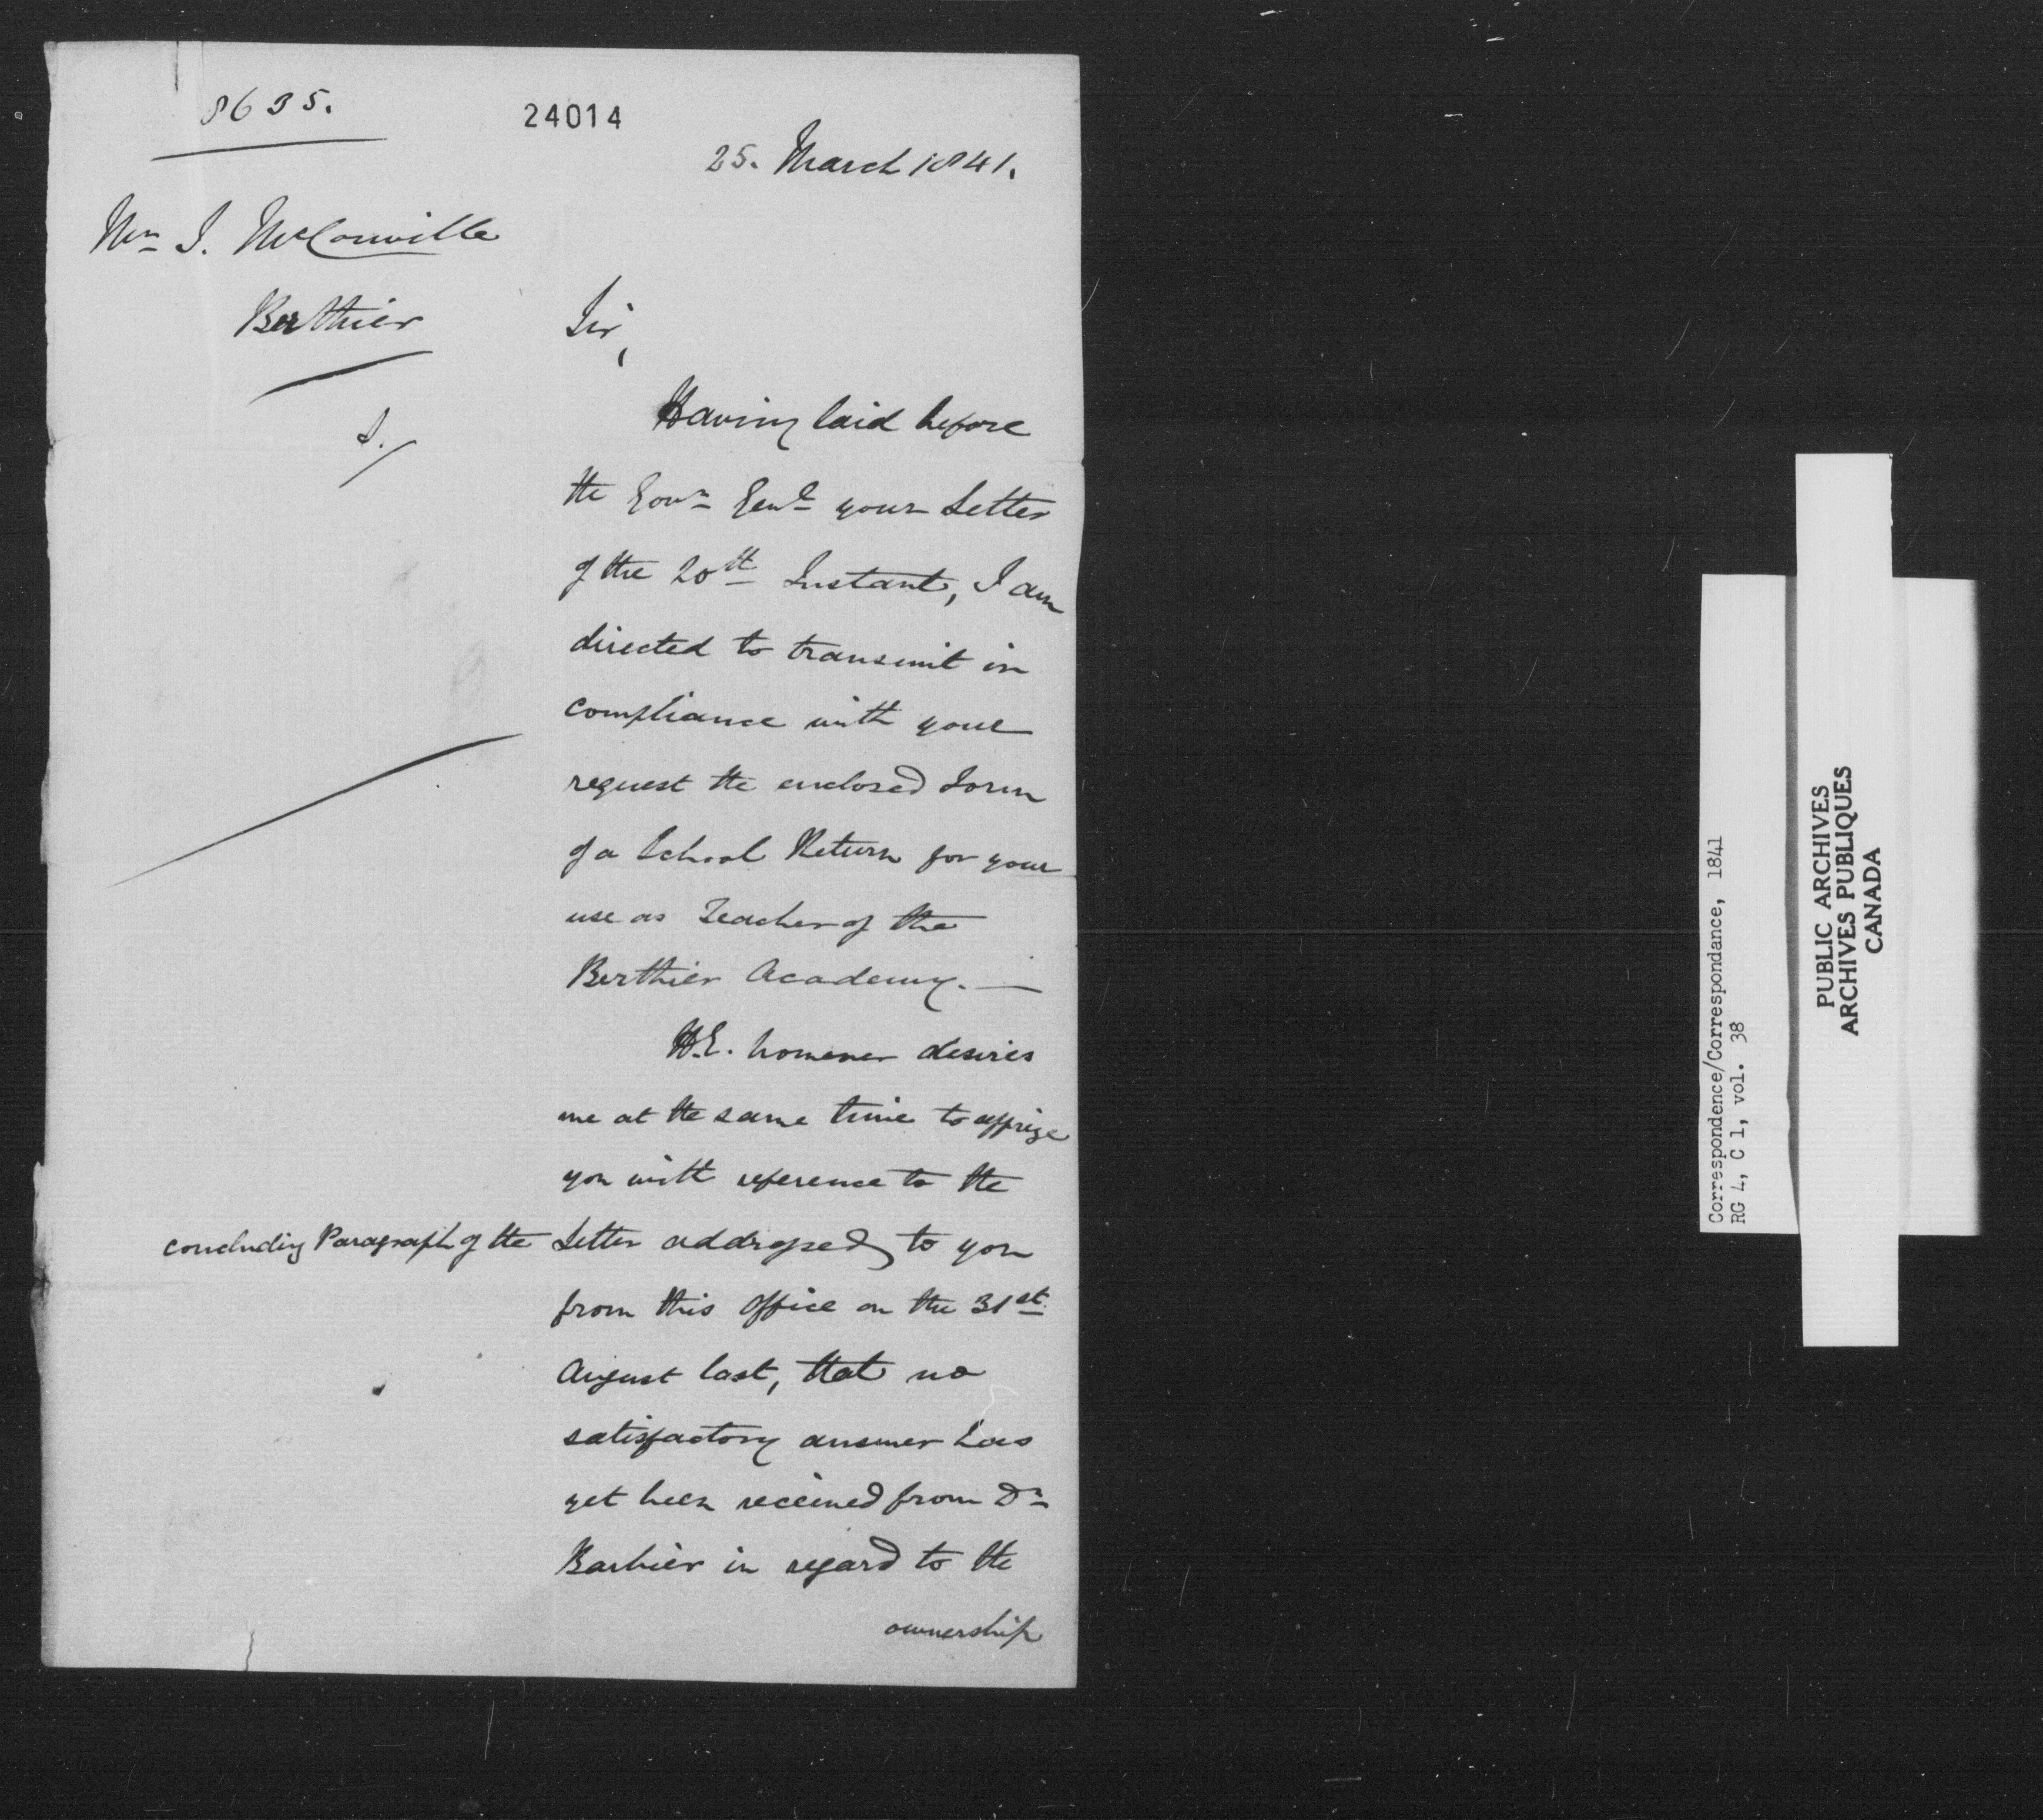 8635.
24014
25. March 1841.
Mr. J. McConville
Berthier
Sir,
Having laid before
the Govr. Genl. your Letter
of the 20th Instant, I am
directed to transmit in
compliance with your
request the enclosed Form
of a School Return for your
use as Teacher of the
Berthier Academy. —
H.E. however desires
me at the same time to apprize
you with reference to the
concluding Paragraph of the Letter addressed to you
from this Office on the 31st.
August last, that no
satisfactory answer has
yet been received from Dr.
Barbier in regard to the
ownership
Correspondence/Correspondance, 1841
RG 4, C 1, vol. 38
PUBLIC ARCHIVES
ARCHIVES PUBLIQUES
CANADA